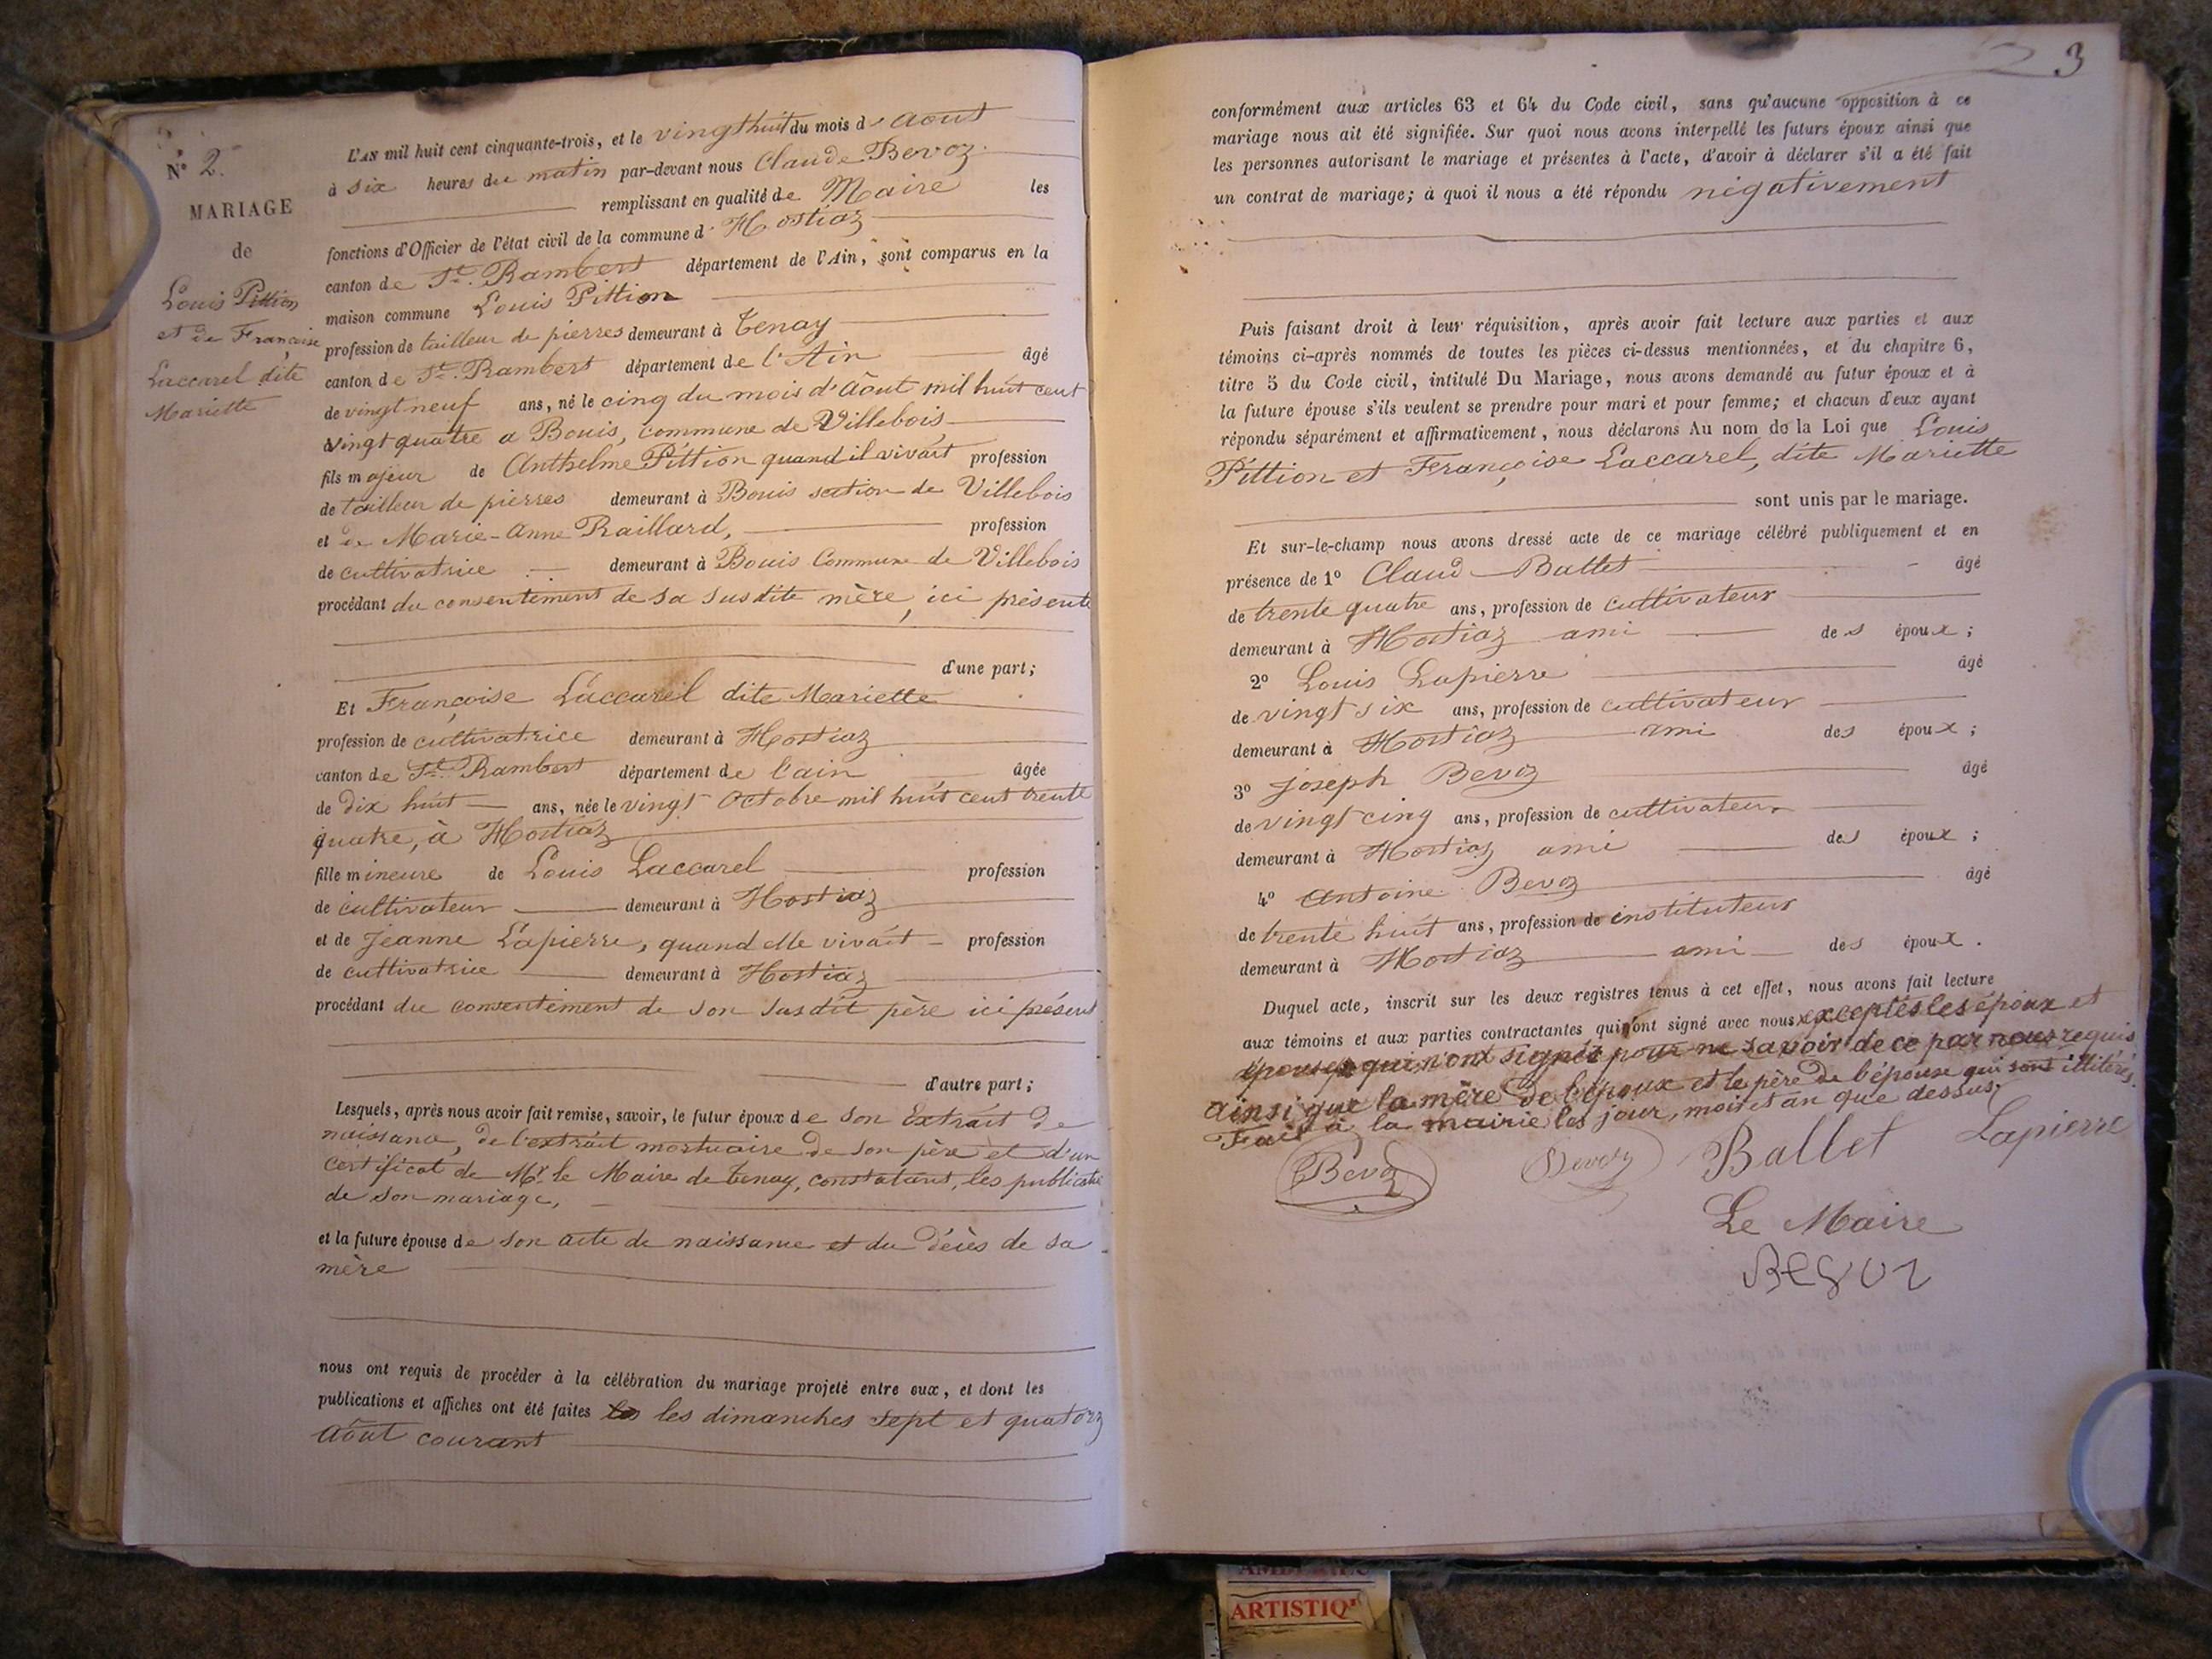 N° 2.
MARIAGE
de
Louis Pittion
et de Françoise
Laccarel dite
Mariette
L'AN mil huit cent cinquante-trois, et le vingt huit du mois d'Août
à six heures du matin par-devant nous Claude Bevoz
remplissant en qualité de Maire les
fonctions d'Officier de l'état civil de la commune d'Hostiaz
canton de St. Rambert département de l'Ain, sont comparus en la
maison commune Louis Pittion
profession de tailleur de pierres demeurant à Tenay
canton de St. Rambert département de l'Ain âgé
de vingt neuf ans, né le cinq du mois d'Août mil huit cent
vingt quatre a Bouis, commune de Villebois
fils majeur de Anthelme Pittion quand il vivait profession
de tailleur de pierres demeurant à Bouis section de Villebois
et de Marie-Anne Raillard, profession
de cultivatrice demeurant à Bouis Commune de Villebois
procédant du consentement de sa susdite mère, ici présente
d'une part;
Et Françoise Laccarel dite Mariette
profession de cultivatrice demeurant à Hostiaz
canton de St. Rambert département de l'ain âgée
de dix huit ans, née le vingt Octobre mil huit cent trente
quatre, à Hostiaz
fille mineure de Louis Laccarel profession
de cultivateur demeurant à Hostiaz
et de Jeanne Lapierre, quand elle vivait profession
de cultivatrice demeurant à Hostiaz
procédant du consentement de son susdit père ici présent
d'autre part;
Lesquels, après nous avoir fait remise, savoir, le futur époux de son Extrait de
naissance, de l'extrait mortuaire de son père et d'un
certificat de Mr. le Maire de Tenay, constatant, les publicatns
de son mariage,
et la future épouse de son acte de naissance et du décès de sa
mère
nous ont requis de procéder à la célébration du mariage projeté entre eux, et dont les
publications et affiches ont été faites les les dimanches sept et quatorz
Août courant
3
conformément aux articles 63 et 64 du Code civil, sans qu'aucune opposition à ce
mariage nous ait été signifiée. Sur quoi nous avons interpellé les futurs époux ainsi que
les personnes autorisant le mariage et présentes à l'acte, d'avoir à déclarer s'il a été fait
un contrat de mariage; à quoi il nous a été répondu négativement
Puis faisant droit à leur réquisition, après avoir fait lecture aux parties et aux
témoins ci-après nommés de toutes les pièces ci-dessus mentionnées, et du chapitre 6,
titre 5 du Code civil, intitulé Du Mariage, nous avons demandé au futur époux et à
la future épouse s'ils veulent se prendre pour mari et pour femme; et chacun d'eux ayant
répondu séparément et affirmativement, nous déclarons Au nom de la Loi que Louis
Pittion et Françoise Laccarel, dite Mariette
sont unis par le mariage.
Et sur-le-champ nous avons dressé acte de ce mariage célébré publiquement et en
présence de 1° Claud Ballet âgé
de trente quatre ans, profession de cultivateur
demeurant à Hostiaz ami des époux;
2° Louis Lapierre âgé
de vingt six ans, profession de cultivateur
demeurant à Hostiaz ami des époux;
3° joseph Bevoz âgé
de vingt cinq ans, profession de cultivateur
demeurant à Hostiaz ami des époux;
4° Antoine Bevoz âgé
de trente huit ans, profession de instituteur
demeurant à Hostiaz ami des époux.
Duquel acte, inscrit sur les deux registres tenus à cet effet, nous avons fait lecture
aux témoins et aux parties contractantes qui ont signé avec nous exceptés les époux et
épouse qui n'ont signés pour ne savoir de ce par nous requis
ainsi que la mère de l'époux et le père de l'épouse qui sont illitérés.
Fait à la mairie les jour, mois et an que dessus,
Bevoz Bevoz Ballet Lapierre
Le Maire
Bevoz
ARTISTIQ